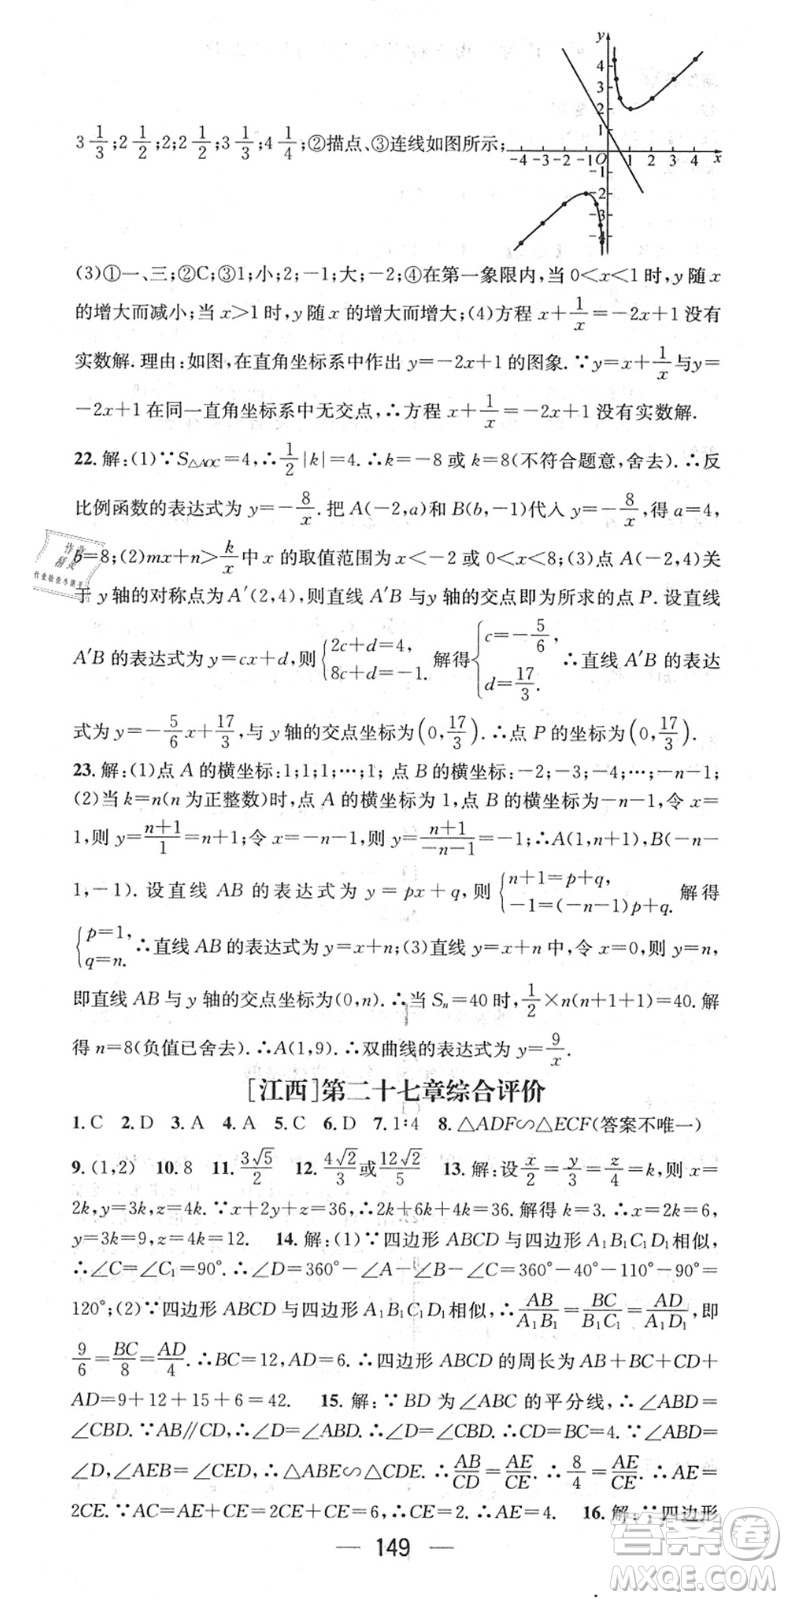 3 1/3;2 1/2;2;2 1/2;3 1/3;4 1/4;②描点、③连线如图所示;
y
4
3
2
1
-4 -3 -2 -1 O 1 2 3 4 x
-1
-2
-3
-4
(3)①一、三;②C;③1;小;2;-1;大;-2;④在第一象限内,当0<x<1时,y随x
的增大而减小;当x>1时,y随x的增大而增大;(4)方程x+1/x=-2x+1没有
实数解.理由:如图,在直角坐标系中作出y=-2x+1的图象.∵y=x+1/x与y=
-2x+1在同一直角坐标系中无交点,∴方程x+1/x=-2x+1没有实数解.
22.解:(1)∵S△AOC=4,∴1/2|k|=4.∴k=-8或k=8(不符合题意,舍去).∴反
比例函数的表达式为y=-8/x.把A(-2,a)和B(b,-1)代入y=-8/x,得a=4,
b=8;(2)mx+n>k/x中x的取值范围为x<-2或0<x<8;(3)点A(-2,4)关
于y轴的对称点为A′(2,4),则直线A′B与y轴的交点即为所求的点P.设直线
A′B的表达式为y=cx+d,则{2c+d=4,8c+d=-1.解得{c=-5/6,d=17/3.∴直线A′B的表达
式为y=-5/6x+17/3,与y轴的交点坐标为(0,17/3).∴点P的坐标为(0,17/3).
23.解:(1)点A的横坐标:1;1;1;…;1;点B的横坐标:-2;-3;-4;…;-n-1;
(2)当k=n(n为正整数)时,点A的横坐标为1,点B的横坐标为-n-1,令x=
1,则y=n+1/1=n+1;令x=-n-1,则y=n+1/-n-1=-1;∴A(1,n+1),B(-n-
1,-1).设直线AB的表达式为y=px+q,则{n+1=p+q,-1=(-n-1)p+q.解得
{p=1,q=n.∴直线AB的表达式为y=x+n;(3)直线y=x+n中,令x=0,则y=n,
即直线AB与y轴的交点坐标为(0,n).∴当Sn=40时,1/2×n(n+1+1)=40.解
得n=8(负值已舍去).∴A(1,9).∴双曲线的表达式为y=9/x.
[江西]第二十七章综合评价
1.C 2.D 3.A 4.A 5.C 6.D 7.1∶4 8.△ADF∽△ECF(答案不唯一)
9.(1,2) 10.8 11.3√5/2 12.4√2/3或12√2/5 13.解:设x/2=y/3=z/4=k,则x=
2k,y=3k,z=4k.∵x+2y+z=36,∴2k+6k+4k=36.解得k=3.∴x=2k=6,
y=3k=9,z=4k=12. 14.解:(1)∵四边形ABCD与四边形A1B1C1D1相似,
∴∠C=∠C1=90°.∴∠D=360°-∠A-∠B-∠C=360°-50°-100°-90°=
120°;(2)∵四边形ABCD与四边形A1B1C1D1相似,∴AB/A1B1=BC/B1C1=AD/A1D1,即
9/6=BC/8=AD/4.∴BC=12,AD=6.∴四边形ABCD的周长为AB+BC+CD+
AD=9+12+15+6=42. 15.解:∵BD为∠ABC的平分线,∴∠ABD=
∠CBD.∵AB∥CD,∴∠D=∠ABD.∴∠D=∠CBD.∴CD=BC=4.∵∠ABD=
∠D,∠AEB=∠CED,∴△ABE∽△CDE.∴AB/CD=AE/CE.∴8/4=AE/CE.∴AE=
2CE.∵AC=AE+CE=2CE+CE=6,∴CE=2,∴AE=4. 16.解:∵四边形
— 149 —
作业
精灵
作业检查小能手
答案圈
MXQE.COM